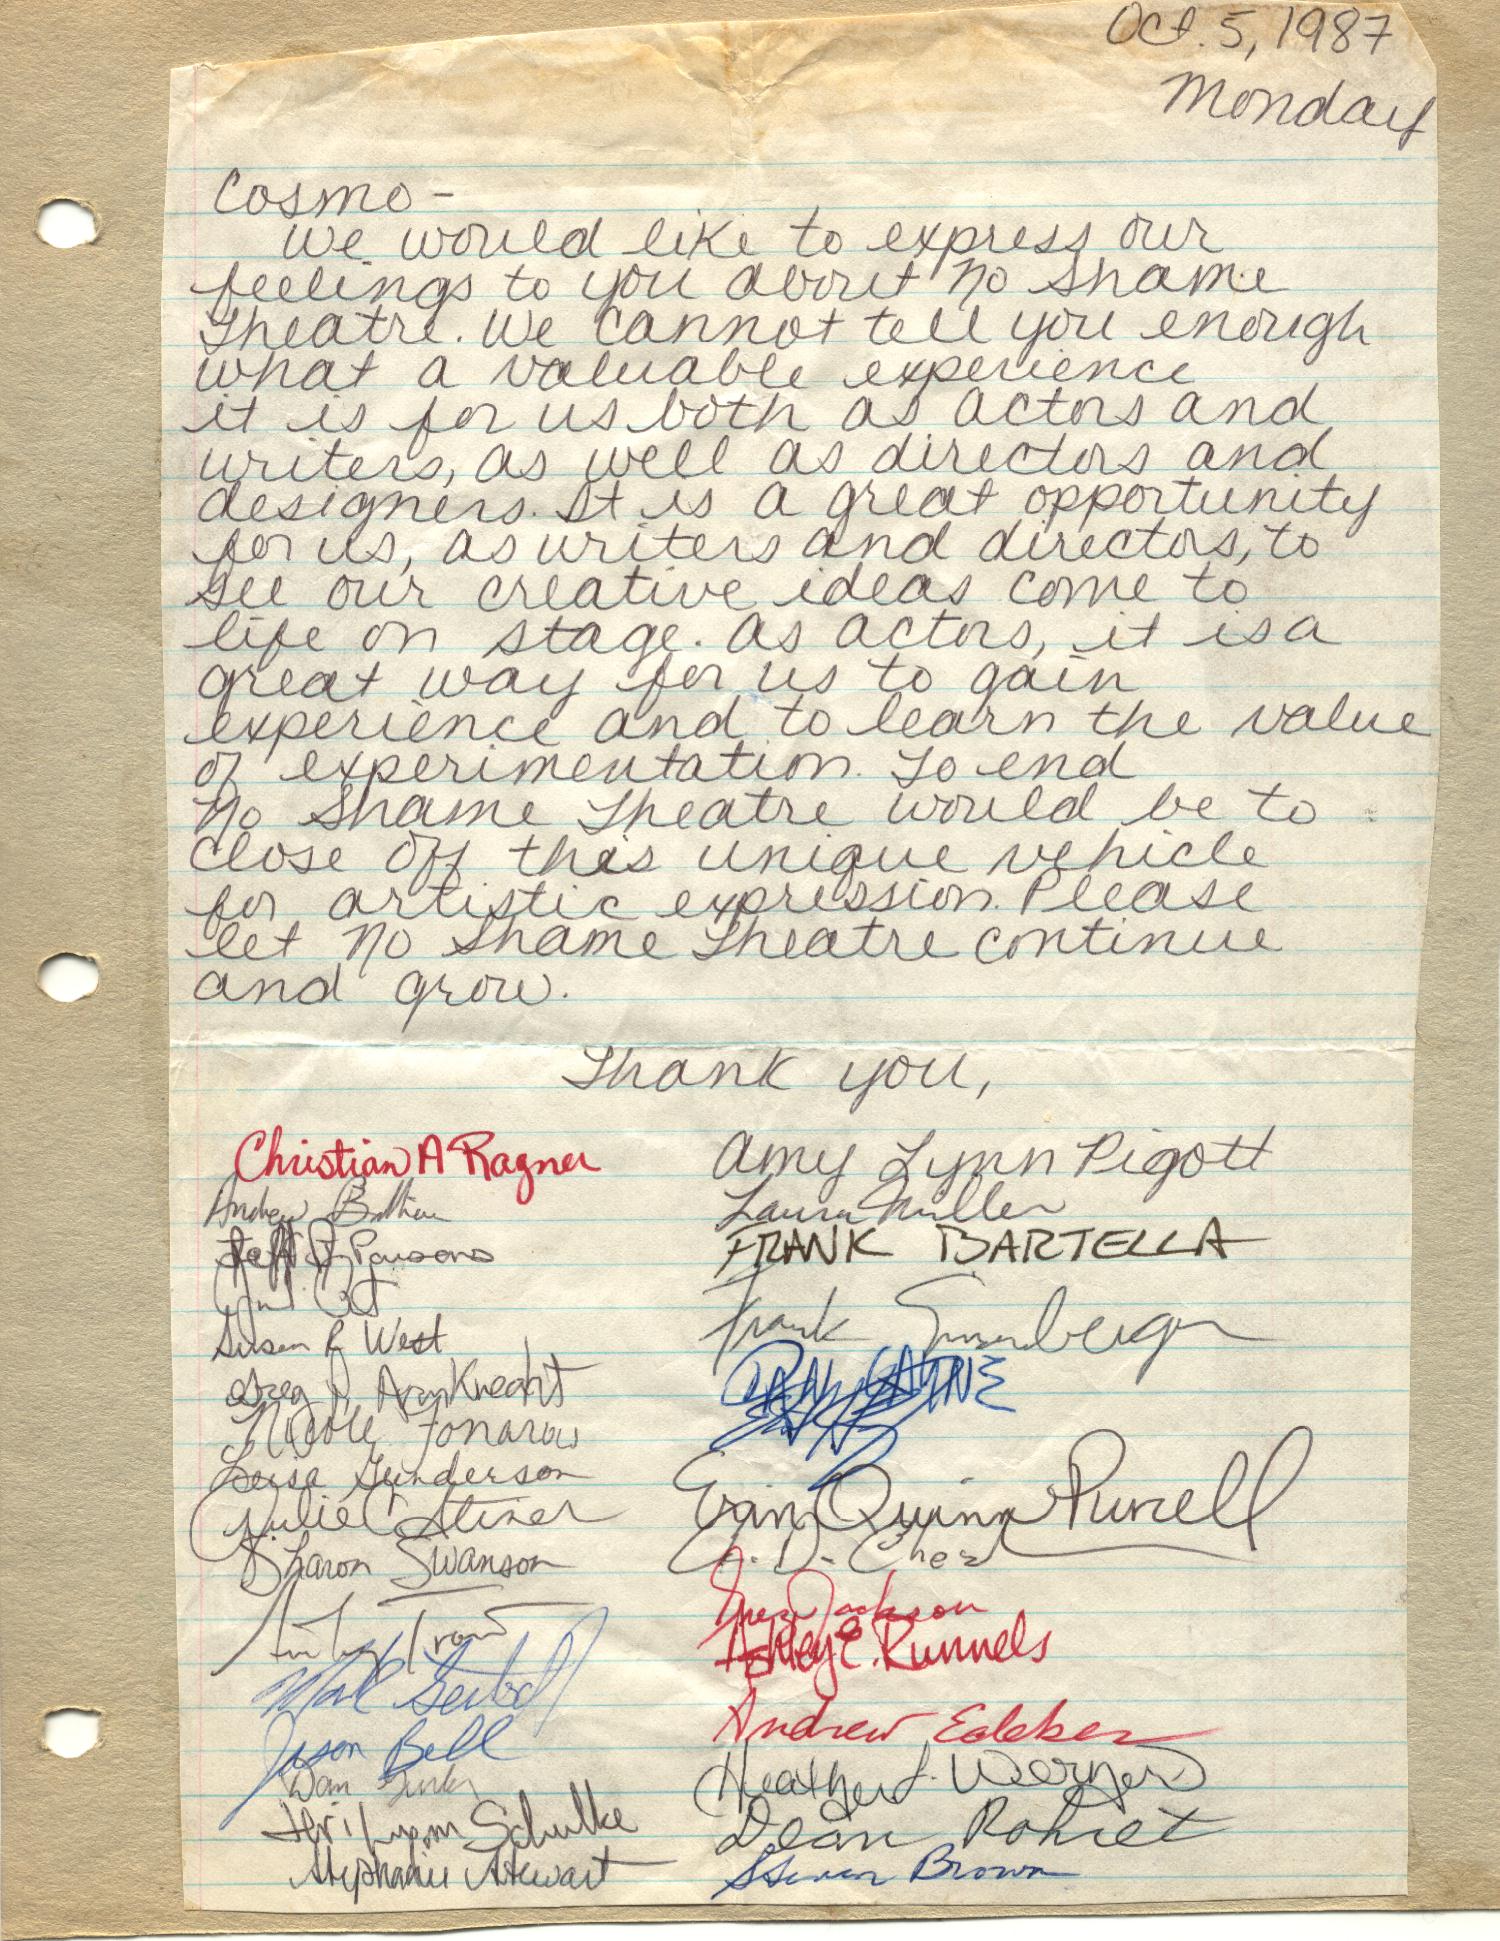 Oct. 5, 1987
Monday
Cosmo -
We would like to express our
feelings to you about No Shame
Theatre. We cannot tell you enough
what a valuable experience
it is for us both as actors and
writers, as well as directors and
designers. It is a great opportunity
for us, as writers and directors, to
see our creative ideas come to
life on stage. As actors, it is a
great way for us to gain
experience and to learn the value
of experimentation. To end
No Shame Theatre would be to
close off this unique vehicle
for artistic expression. Please
let No Shame Theatre continue
and grow.
Thank you,
Christian A Ragner
Andrew
Jeff J Parsons
Susan R West
Greg P. ArmKnecht
Nicole Fonarow
Leisa Gunderson
Julie C Stiner
Sharon Swanson
Jason Bell
Dan
Schulke
Stephanie Stewart
Amy Lynn Pigott
Laura Miller
FRANK BARTELLA
Frank
Evan Quinn Purcell
Jackson
Ashley E. Runnels
Andrew
Heather J. Werner
Dean Rohret
Steven Brown